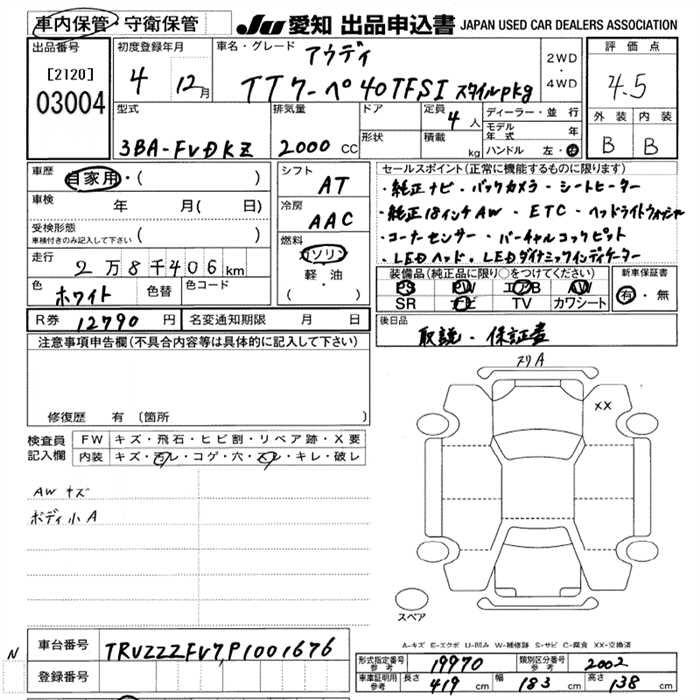 車内保管・守衛保管
JU 愛知 出品申込書 JAPAN USED CAR DEALERS ASSOCIATION
出品番号 初度登録年月 車名・グレード アウディ 2WD・4WD 評価点
[2120] 03004 4 12月 TTクーペ40TFSI スタイルpkg 4.5
型式 排気量 ドア 定員 4人 ディーラー・並行 外装 内装
3BA-FVDKZ 2000 CC 形状 積載 kg モデル年式 年 B B
ハンドル 左・右
車歴 自家用・( ) シフト AT セールスポイント(正常に機能するものに限ります)
車検 年 月( 日) 冷房 AAC
・純正ナビ・バックカメラ・シートヒーター
・純正18インチAW・ETC・ヘッドライトウォッシャー
受検形態 車検付きのみ記入して下さい ( ) 燃料 ガソリン
・コーナーセンサー・バーチャルコックピット
・LEDヘッド・LEDダイナミックインディケーター
走行 2万8千406km 軽・油 ( )
装備品(純正品に限り○をつけてください) 新車保証書
色 ホワイト 色替 色コード
PS PW エアB AW 有・無
SR ナビ TV カワシート
R券 12790円 名変通知期限 月 日
後日品 取説・保証書
注意事項申告欄(不具合内容等は具体的に記入して下さい)
スリA
XX
修復歴 有 (箇所 )
検査員記入欄 FW キズ・飛石・ヒビ割・リペア跡・X要
内装 キズ・汚レ・コゲ・穴・スレ・キレ・破レ
AWキズ
ボディ小A
スペア
A-キズ E-エクボ U-凹み W-補修跡 S-サビ C-腐食 XX-交換済
N 車台番号 TRUZZZFV7P1001676
登録番号
形式指定番号 参考 19970 類別区分番号 参考 2002
車庫証明用 参考 長さ 419 cm 幅 183 cm 高さ 138 cm